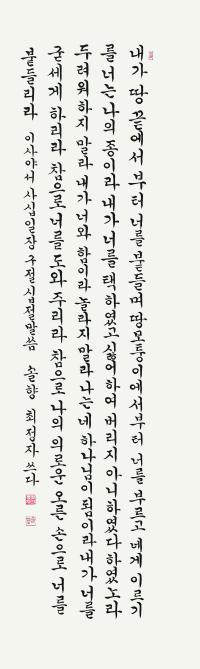 내가 땅 끝에서 부터 너를 붙들며 땅 모퉁이에서 부터 너를 부르고 네게 이르기
를 너는 나의 종이라 내가 너를 택하였고 싫어하여 버리지 아니하였다 하였노라
두려워하지 말라 내가 너와 함이라 놀라지말라 나는 네 하나님이 됨이라 내가 너를
굳세게 하리라 참으로 너를 도와 주리라 참으로 나의 의로운 오른 손으로 너를
붙들리라 이사야서 사십일장 구절 십절 말씀 솔향 최정자 쓰다